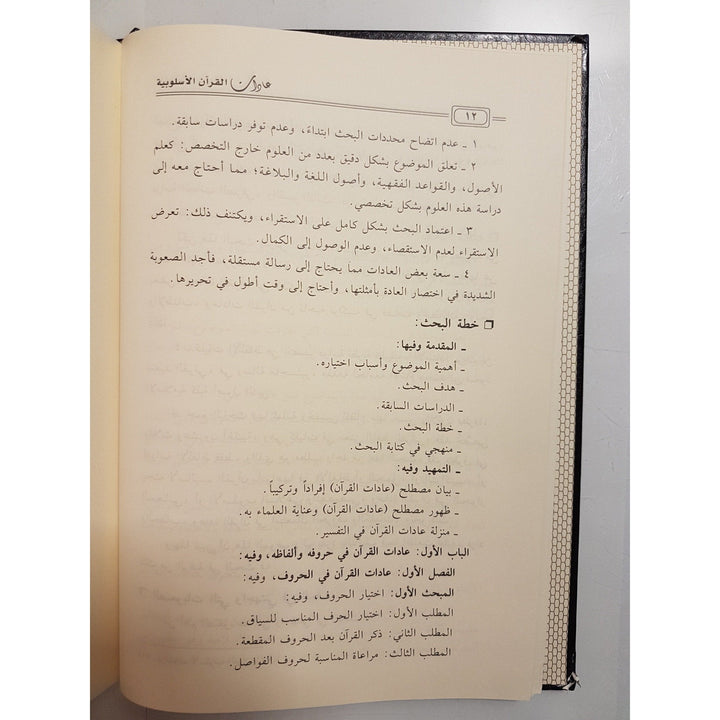 عادات القرآن الأسلوبية
١٢
١ ـ عدم اتضاح محددات البحث ابتداءً، وعدم توفر دراسات سابقة.
٢ ـ تعلق الموضوع بشكل دقيق بعدد من العلوم خارج التخصص: كعلم
الأصول، والقواعد الفقهية، وأصول اللغة والبلاغة؛ مما أحتاج معه إلى
دراسة هذه العلوم بشكل تخصصي.
٣ ـ اعتماد البحث بشكل كامل على الاستقراء، ويكتنف ذلك: تعرض
الاستقراء لعدم الاستقصاء، وعدم الوصول إلى الكمال.
٤ ـ سعة بعض العادات مما يحتاج إلى رسالة مستقلة، فأجد الصعوبة
الشديدة في اختصار العادة بأمثلتها، وأحتاج إلى وقت أطول في تحريرها.
خطة البحث:
ـ المقدمة وفيها:
ـ أهمية الموضوع وأسباب اختياره.
ـ هدف البحث.
ـ الدراسات السابقة.
ـ خطة البحث.
ـ منهجي في كتابة البحث.
ـ التمهيد وفيه:
ـ بيان مصطلح (عادات القرآن) إفراداً وتركيباً.
ـ ظهور مصطلح (عادات القرآن) وعناية العلماء به.
ـ منزلة عادات القرآن في التفسير.
الباب الأول: عادات القرآن في حروفه وألفاظه، وفيه:
الفصل الأول: عادات القرآن في الحروف، وفيه:
المبحث الأول: اختيار الحروف، وفيه:
المطلب الأول: اختيار الحرف المناسب للسياق.
المطلب الثاني: ذكر القرآن بعد الحروف المقطعة.
المطلب الثالث: مراعاة المناسبة لحروف الفواصل.